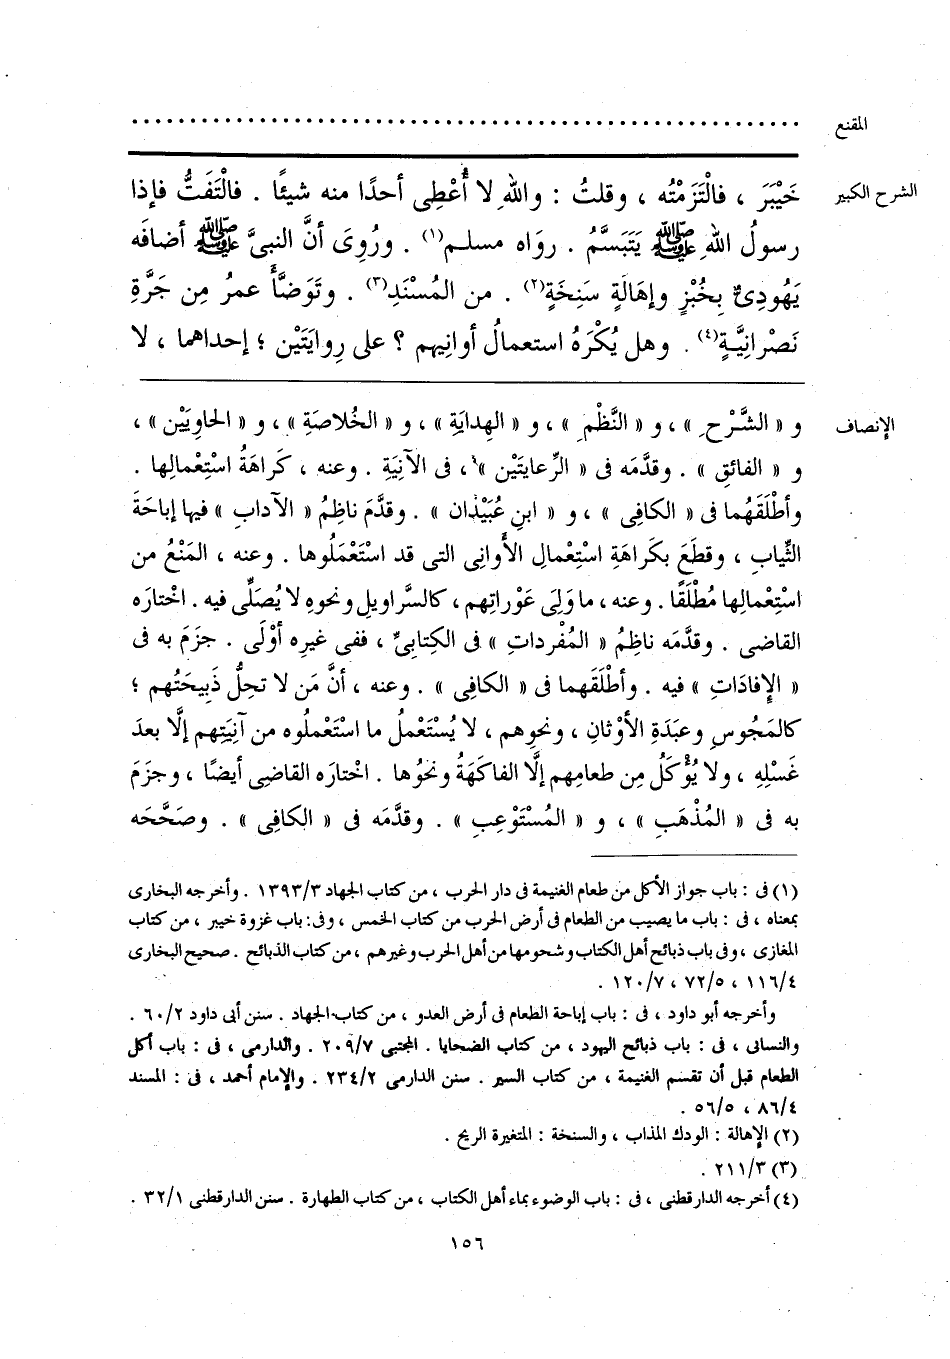 المقنع ..........................................................
الشرح الكبير
خَيْبَرَ ، فالْتَزَمْتُه ، وقلتُ : واللهِ لا أُعْطِى أحدًا منه شيئًا . فالْتَفَتُّ فإذا
رسولُ اللهِ ﷺ يَتَبَسَّمُ . روَاه مسلم(١) . ورُوِىَ أنَّ النبىَّ ﷺ أضافَه
يَهُودِىٌّ بِخُبْزٍ وإهَالَةٍ سَنِخَةٍ(٢) . من المُسْنَدِ(٣) . وتَوَضَّأَ عمرُ مِن جَرَّةِ
نَصْرانِيَّةٍ(٤) . وهل يُكْرَهُ استعمالُ أوانِيهم ؟ على رِوايَتَيْن ؛ إحداهما ، لا
الإنصاف
و « الشَّرْحِ » ، و « النَّظْمِ » ، و « الهِدايَةِ » ، و « الخُلاصَةِ » ، و « الحاوِيَيْن » ،
و « الفائقِ » . وقدَّمَه فى « الرِّعايتَيْن » ، فى الآنِيَةِ . وعنه ، كَراهَةُ اسْتِعْمالِها .
وأطْلَقَهُما فى « الكافِى » ، و « ابنِ عُبَيْدَان » . وقدَّمَ ناظِمُ « الآدابِ » فيها إباحَةَ
الثِّيابِ ، وقطَعَ بكَراهَةِ اسْتِعْمالِ الأَوانِى التى قد اسْتَعْمَلُوها . وعنه ، المَنْعُ من
اسْتِعْمالِها مُطْلَقًا . وعنه ، ما وَلِىَ عَوْراتِهم ، كالسَّراويلِ ونحوِه لا يُصَلَّى فيه . اخْتارَه
القاضى . وقدَّمَه ناظِمُ « المُفْرداتِ » فى الكِتابِىِّ ، ففى غيرِه أوْلَى . جزَمَ به فى
« الإِفادَاتِ » فيه . وأطْلَقَهما فى « الكافِى » . وعنه ، أنَّ مَن لا تحِلُّ ذَبِيحَتُهم ؛
كالمَجُوسِ وعبَدَةِ الأوْثانِ ، ونحوِهم ، لا يُسْتَعْمَلُ ما اسْتَعْملُوه من آنِيَتِهم إلَّا بعدَ
غَسْلِهِ ، ولا يُؤْكَلُ مِن طعامِهم إلَّا الفاكهَةُ ونحْوُها . اخْتارَه القاضِى أيضًا ، وجزَمَ
به فى « المُذْهَبِ » ، و « المُسْتَوْعِبِ » . وقدَّمَه فى « الكافِى » . وصَحَّحَه
(١) فى : باب جواز الأكل من طعام الغنيمة فى دار الحرب ، من كتاب الجهاد ١٣٩٣/٣ . وأخرجه البخارى
بمعناه ، فى : باب ما يصيب من الطعام فى أرض الحرب من كتاب الخمس ، وفى : باب غزوة خيبر ، من كتاب
المغازى ، وفى باب ذبائح أهل الكتاب وشحومها من أهل الحرب وغيرهم ، من كتاب الذبائح . صحيح البخارى
١١٦/٤ ، ٧٢/٥ ، ١٢٠/٧ .
وأخرجه أبو داود ، فى : باب إباحة الطعام فى أرض العدو ، من كتاب الجهاد . سنن أبى داود ٦٠/٢ .
والنسائى ، فى : باب ذبائح اليهود ، من كتاب الضحايا . المجتبى ٢٠٩/٧ . والدارمى ، فى : باب أكل
الطعام قبل أن تقسم الغنيمة ، من كتاب السير . سنن الدارمى ٢٣٤/٢ . والإمام أحمد ، فى : المسند
٨٦/٤ ، ٥٦/٥ .
(٢) الإهالة : الودك المذاب ، والسنخة : المتغيرة الريح .
(٣) ٢١١/٣ .
(٤) أخرجه الدارقطنى ، فى : باب الوضوء بماء أهل الكتاب ، من كتاب الطهارة . سنن الدارقطنى ٣٢/١ .
١٥٦